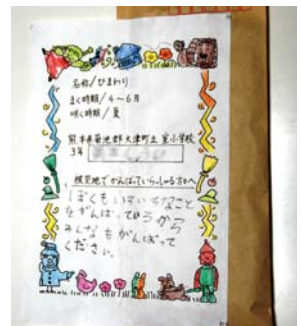 名称/ひまわり
まく時期/4~6月
咲く時期/夏
熊本県菊池郡大津町立 室小学校
3年
被災地でがんばっていらっしゃる方々へ
ぼくもいろいろなこと
をがんばっているから
みんなもがんばって
ください。